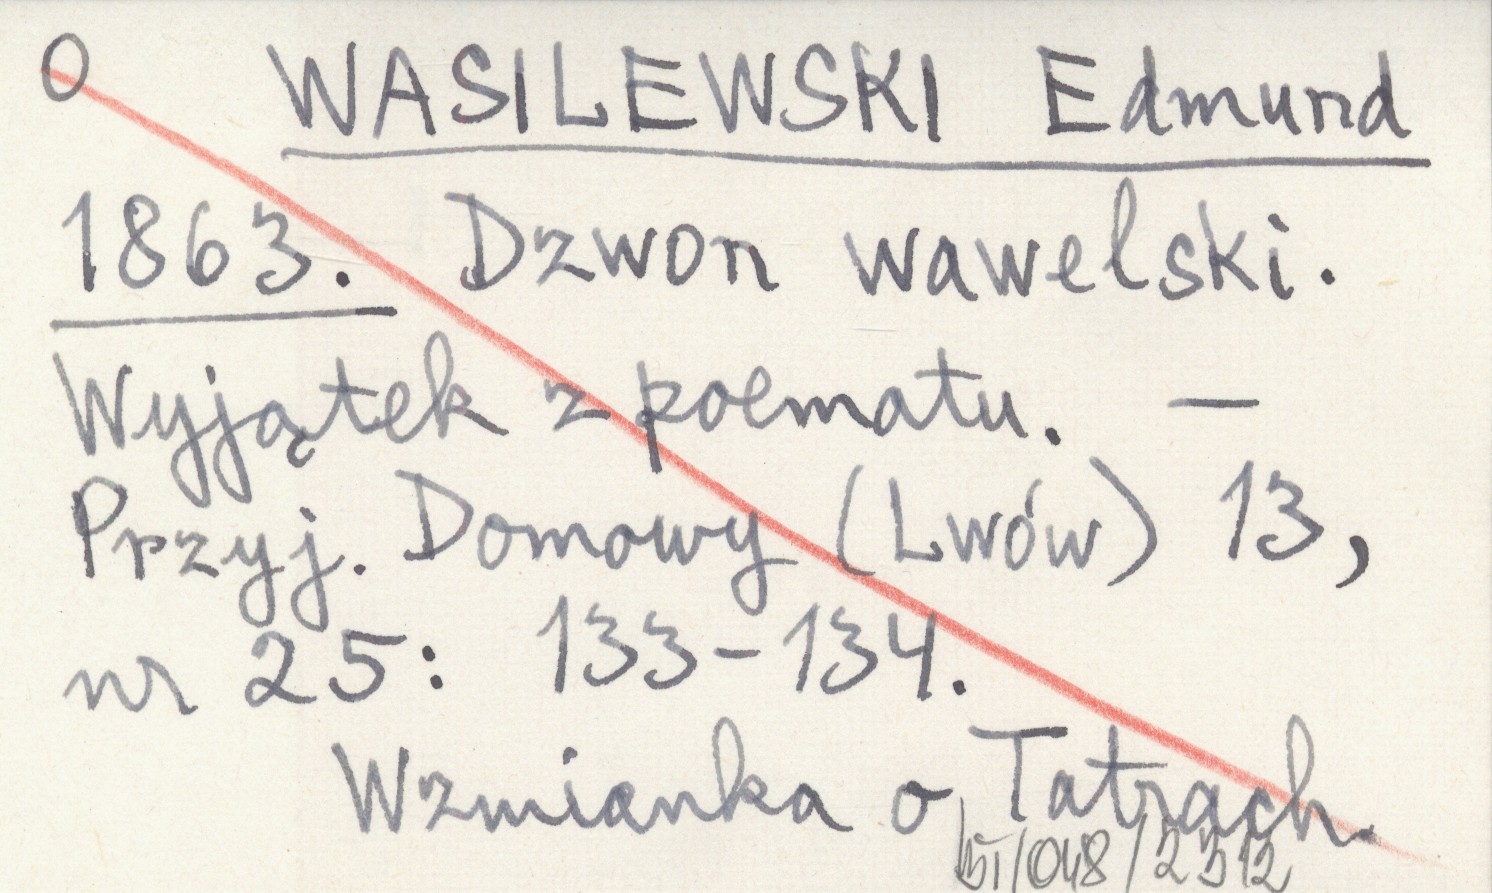 O WASILEWSKI Edmund
1863. Dzwon wawelski.
Wyjątek z poematu. —
Przyj. Domowy (Lwów) 13,
nr 25: 133-134.
Wzmianka o Tatrach.
/048/2312